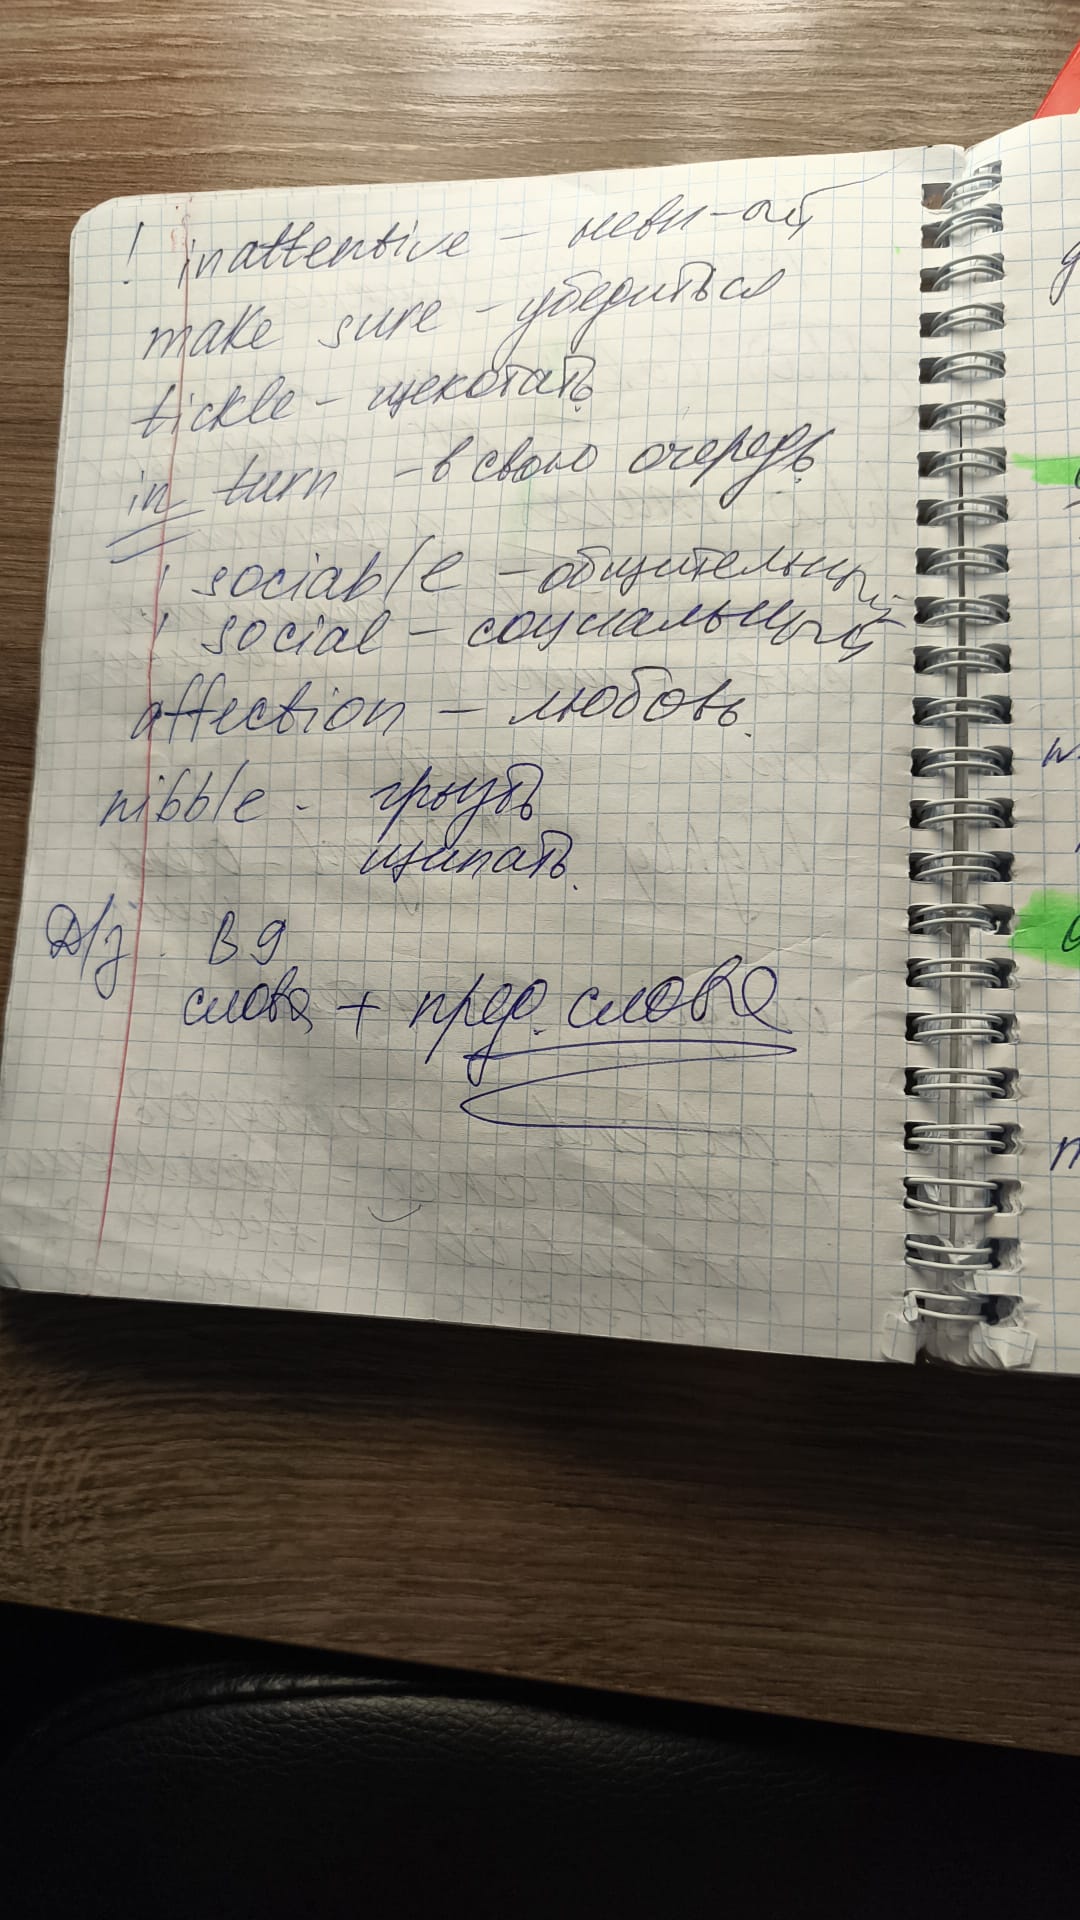 ! inattentive – невн-ый
make sure – убедиться
tickle – щекотать
in turn – в свою очередь
! sociable – общительный
! social – социальный
affection – любовь
nibble - грызть
щипать
Д/з. B 9
слова + пред. слова